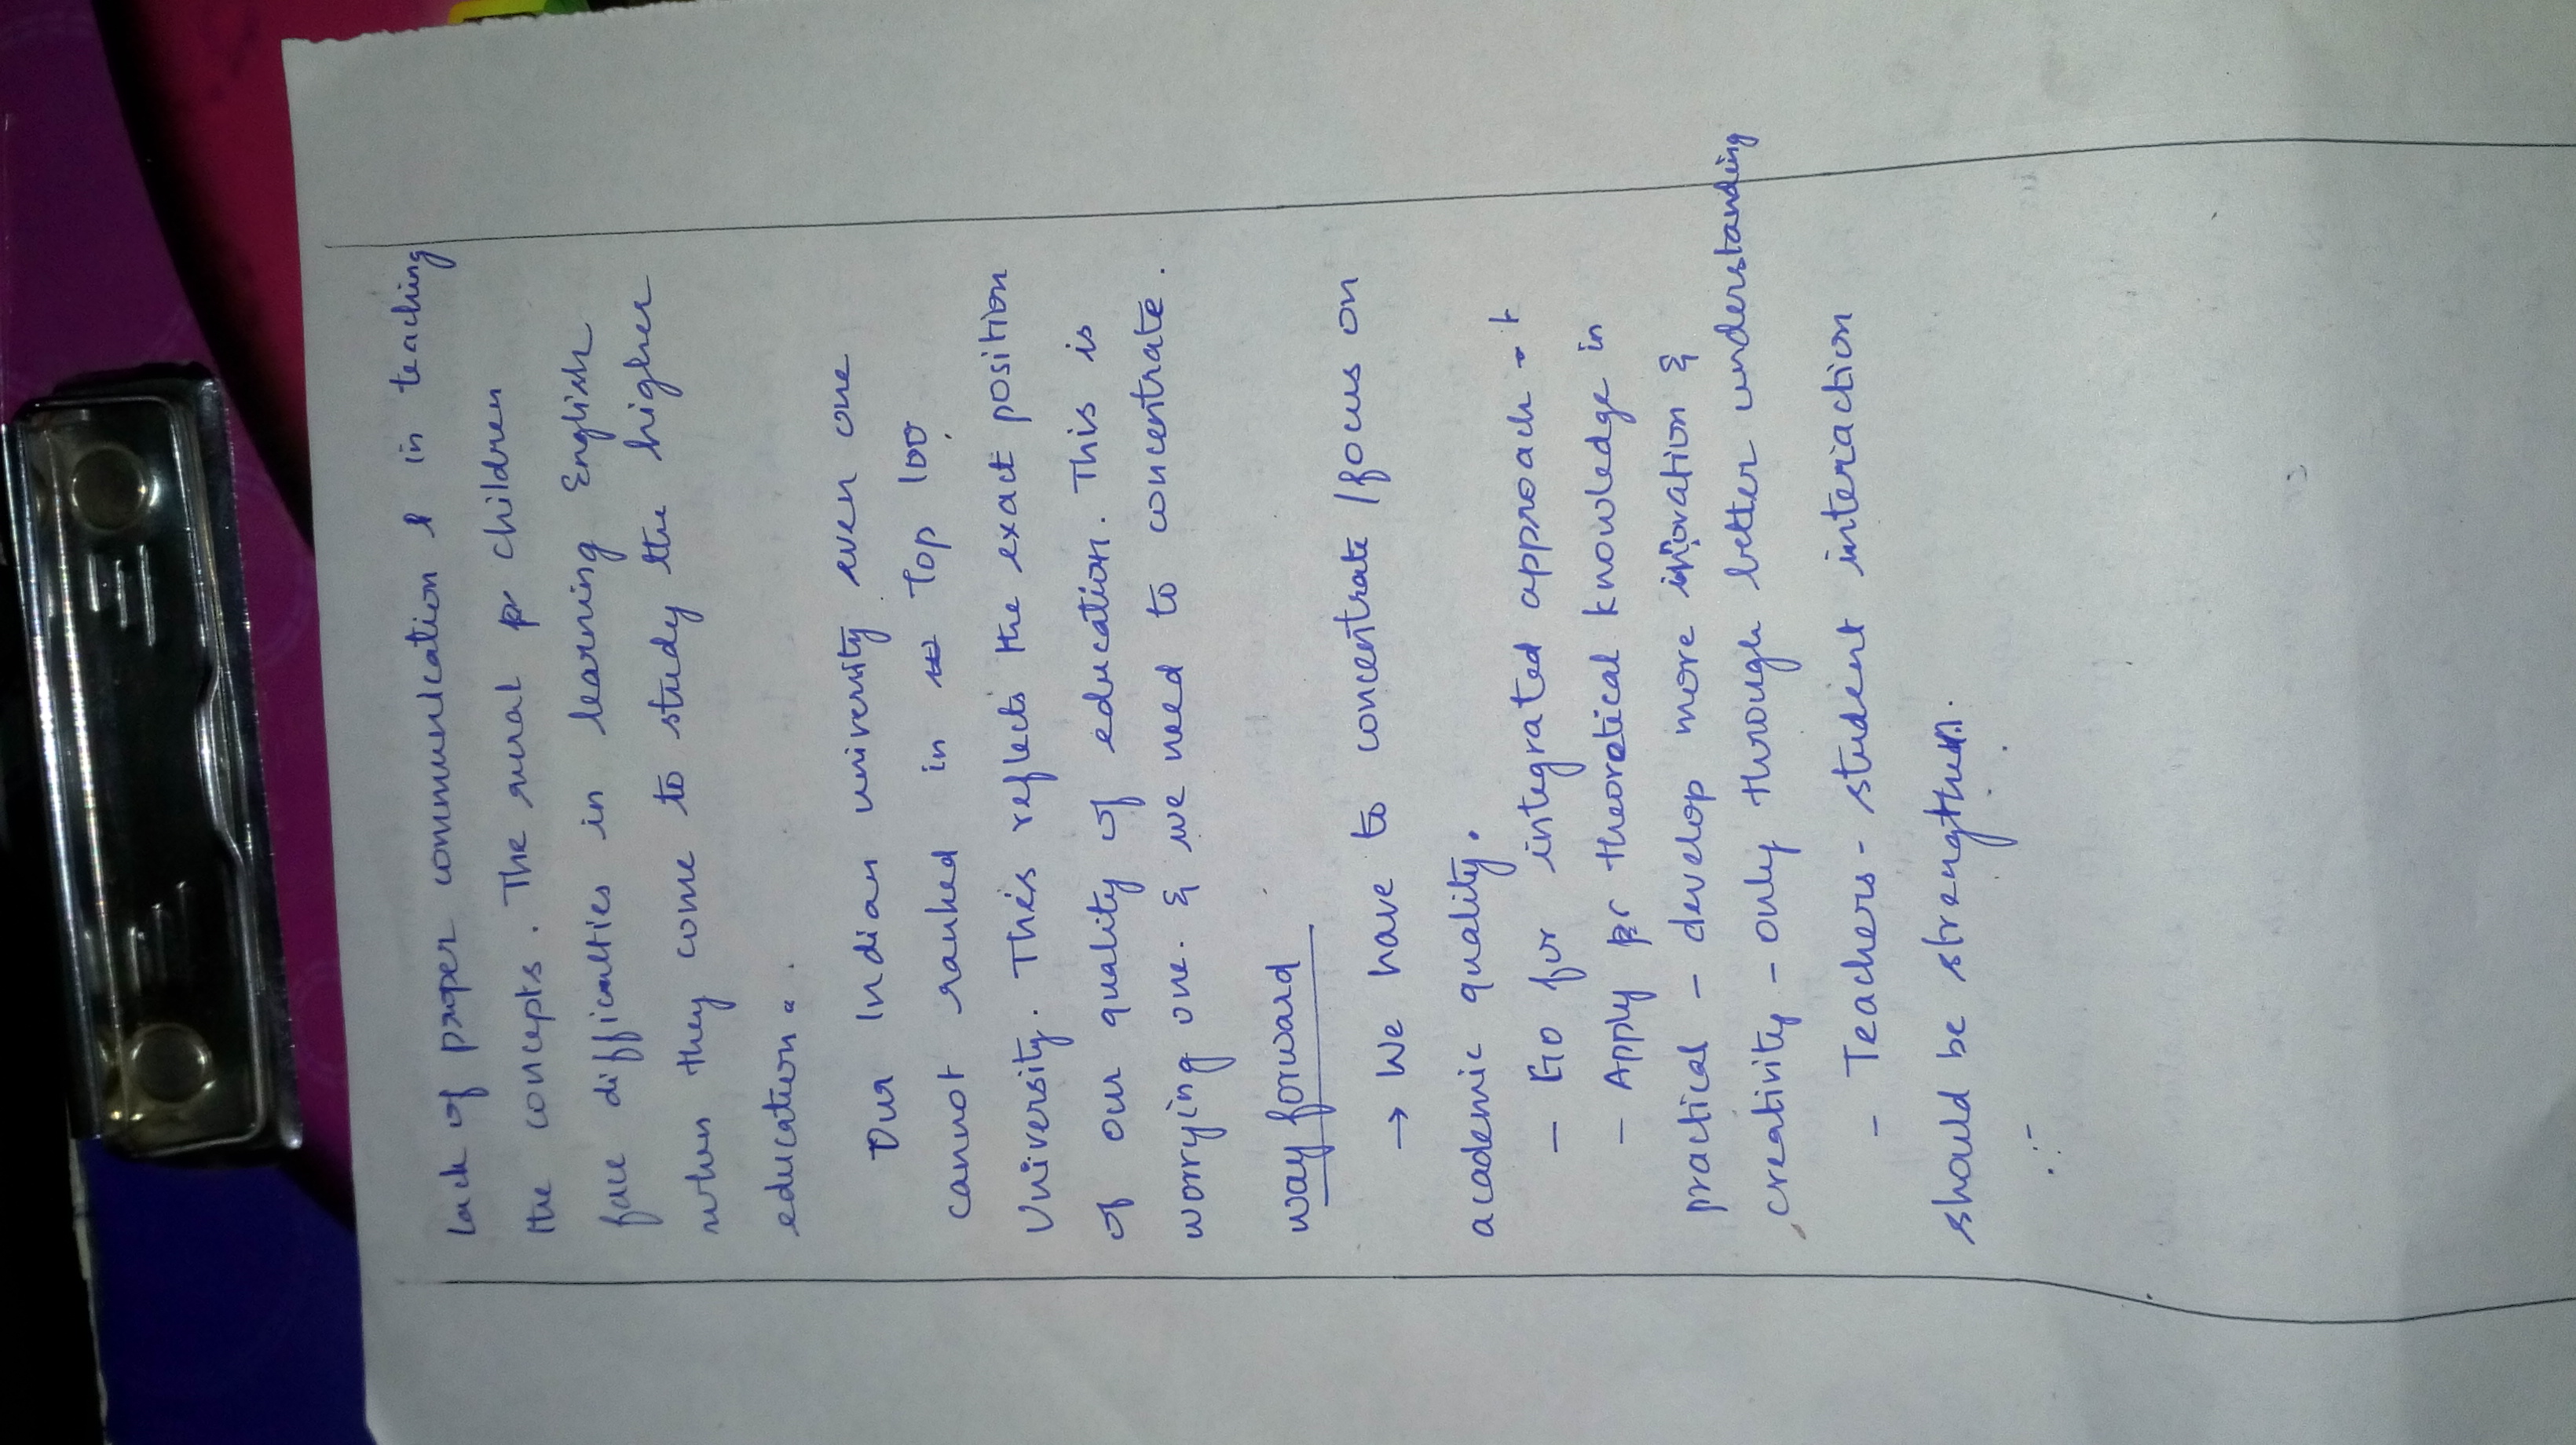 Lack of proper communication in teaching
the concepts. The rural children
face difficulties in learning English
when they come to study the higher
education.
Our Indian university even one
cannot ranked in Top 100
University. This reflects the exact position
of our quality of education. This is
worrying one. & we need to concentrate.
way forward
→ We have to concentrate / focus on
academic quality.
- Go for integrated approach
- Apply theoretical knowledge in
practical - develop more inovation &
creativity - only through better understanding
- Teachers - student interaction
should be strengthen.